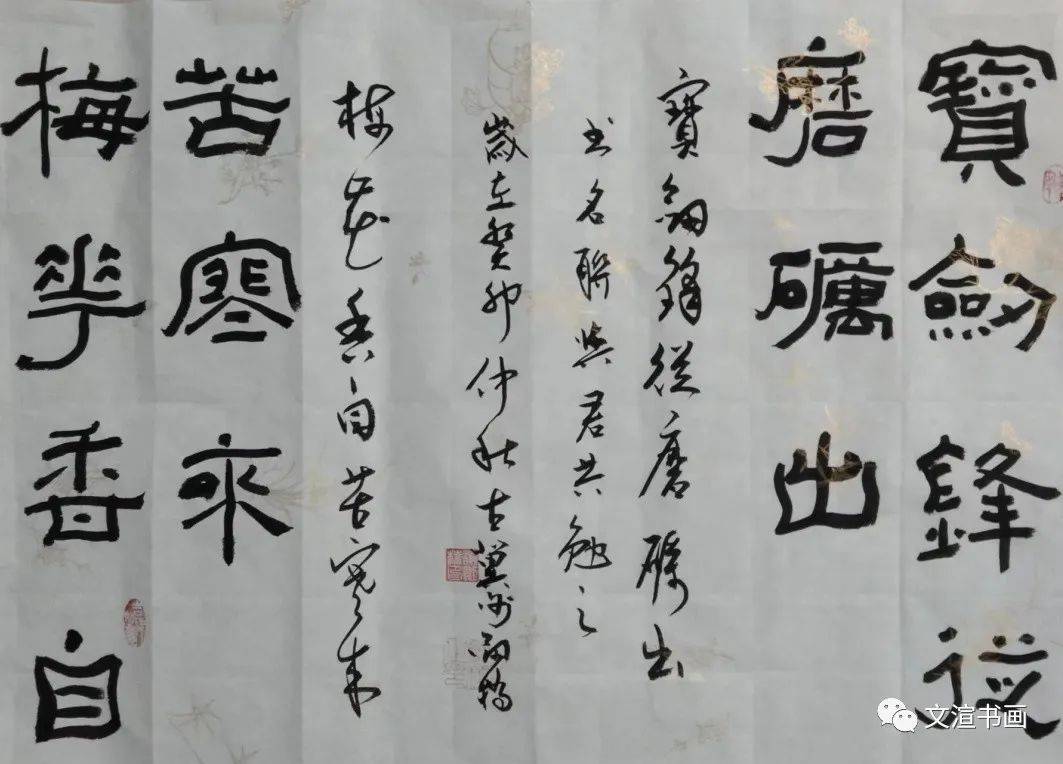 寶劍鋒從
磨礪出
寶劍鋒從磨礪出
書名聯與君共勉之
梅華香自
苦寒來
梅花香自苦寒來
歲在癸卯仲秋古冀州
文渲书画